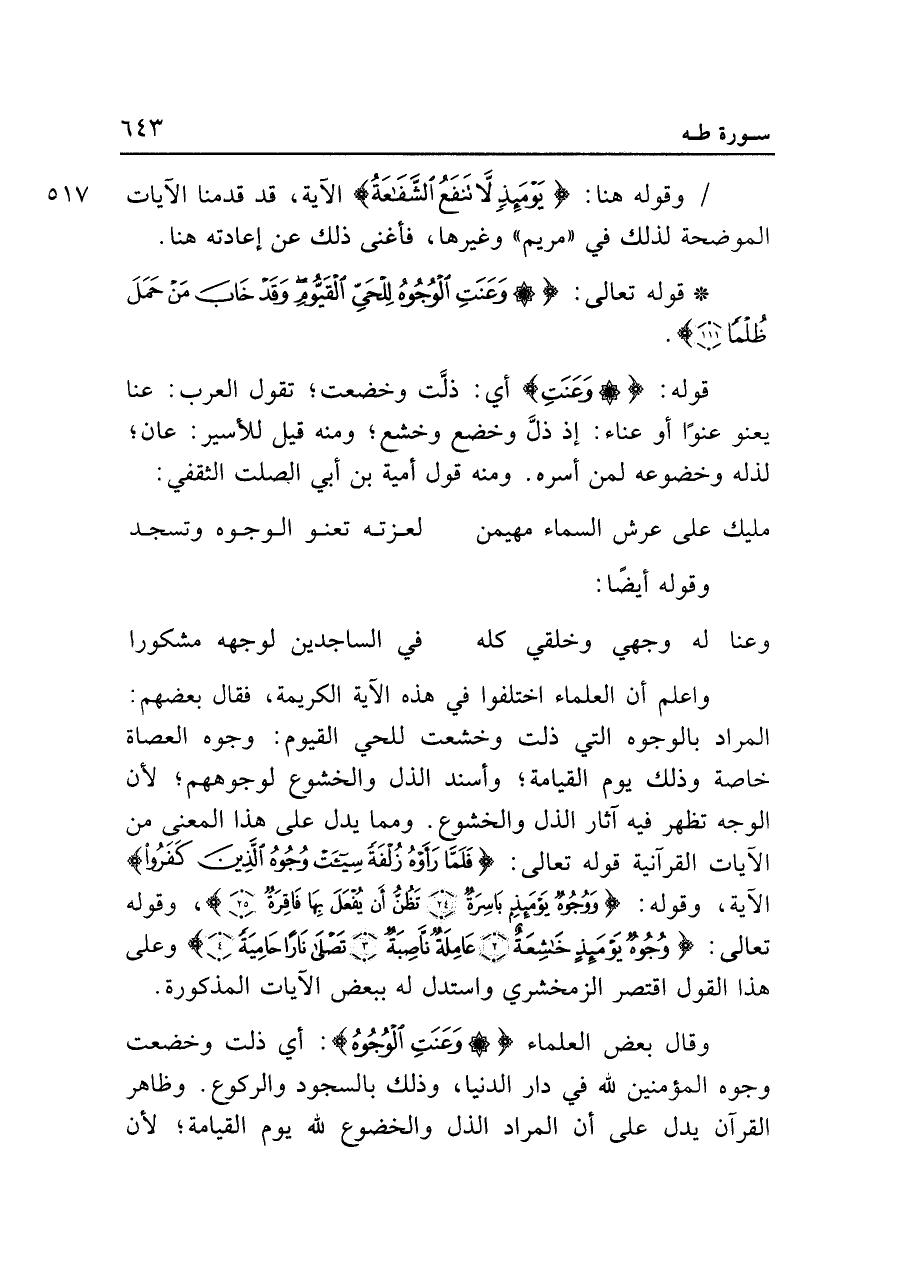 سـورة طـه ٦٤٣
/ وقوله هنا: ﴿يَوْمَئِذٍ لَّا تَنفَعُ ٱلشَّفَٰعَةُ﴾ الآية، قد قدمنا الآيات ٥١٧
الموضحة لذلك في «مريم» وغيرها، فأغنى ذلك عن إعادته هنا.
* قوله تعالى: ﴿۞ وَعَنَتِ ٱلْوُجُوهُ لِلْحَيِّ ٱلْقَيُّومِۖ وَقَدْ خَابَ مَنْ حَمَلَ
ظُلْمًا ۝١١١﴾.
قوله: ﴿۞ وَعَنَتِ﴾ أي: ذلَّت وخضعت؛ تقول العرب: عنا
يعنو عنوًا أو عناء: إذ ذلَّ وخضع وخشع؛ ومنه قيل للأسير: عان؛
لذله وخضوعه لمن أسره. ومنه قول أمية بن أبي الصلت الثقفي:
مليك على عرش السماء مهيمن لعـزتـه تعنـو الـوجـوه وتسجـد
وقوله أيضًا:
وعنا له وجهي وخلقي كله في الساجدين لوجهه مشكورا
واعلم أن العلماء اختلفوا في هذه الآية الكريمة، فقال بعضهم:
المراد بالوجوه التي ذلت وخشعت للحي القيوم: وجوه العصاة
خاصة وذلك يوم القيامة؛ وأسند الذل والخشوع لوجوههم؛ لأن
الوجه تظهر فيه آثار الذل والخشوع. ومما يدل على هذا المعنى من
الآيات القرآنية قوله تعالى: ﴿فَلَمَّا رَأَوْهُ زُلْفَةً سِيٓـَٔتْ وُجُوهُ ٱلَّذِينَ كَفَرُوا۟﴾
الآية، وقوله: ﴿وَوُجُوهٌ يَوْمَئِذٍۭ بَاسِرَةٌ ۝٢٤ تَظُنُّ أَن يُفْعَلَ بِهَا فَاقِرَةٌ ۝٢٥﴾، وقوله
تعالى: ﴿وُجُوهٌ يَوْمَئِذٍ خَٰشِعَةٌ ۝٢ عَامِلَةٌ نَّاصِبَةٌ ۝٣ تَصْلَىٰ نَارًا حَامِيَةً ۝٤﴾ وعلى
هذا القول اقتصر الزمخشري واستدل له ببعض الآيات المذكورة.
وقال بعض العلماء ﴿۞ وَعَنَتِ ٱلْوُجُوهُ﴾: أي ذلت وخضعت
وجوه المؤمنين لله في دار الدنيا، وذلك بالسجود والركوع. وظاهر
القرآن يدل على أن المراد الذل والخضوع لله يوم القيامة؛ لأن